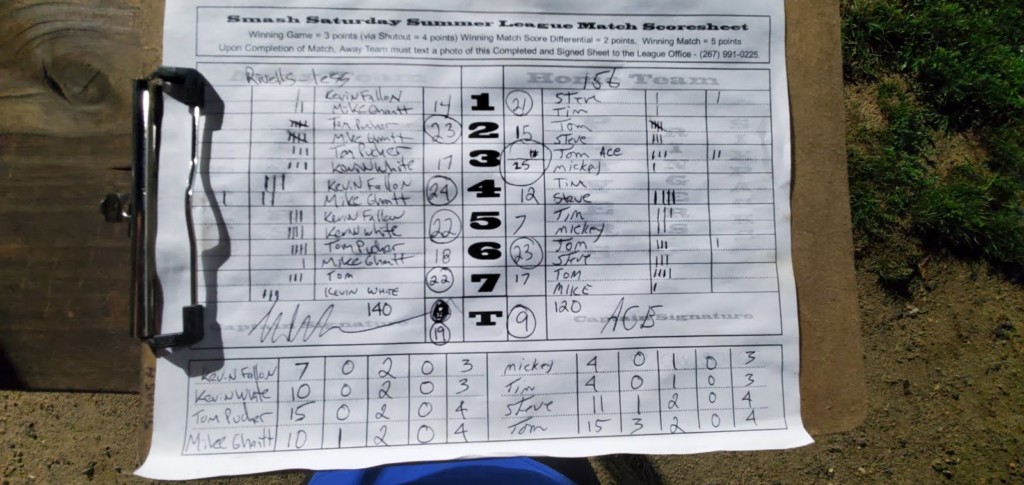 Smash Saturday Summer League Match Scoresheet
Winning Game = 3 points (via Shutout = 4 points) Winning Match Score Differential = 2 points, Winning Match = 5 points
Upon Completion of Match, Away Team must text a photo of this Completed and Signed Sheet to the League Office - (267) 991-0225
Team Home Team
Kevin Fallon 14 1 21 Steve
Mike Ghatt Tim
Tom Pucher 23 2 15 Tom
Mike Ghatt Steve
Tom Pucher 17 3 25 Tom Ace
Kevin White mickey
Kevin Fallon 24 4 12 Tim
Mike Ghatt Steve
Kevin Fallon 22 5 7 Tim
Kevin White mickey
Tom Pucher 18 6 23 Tom
Mike Ghatt Steve
TOM 22 7 17 TOM
KEVIN WHITE MIKE
140 T 9 120
19
Captain Signature Captain Signature
Kevin Fallon 7 0 2 0 3 mickey 4 0 1 0 3
Kevin White 10 0 2 0 3 Tim 4 0 1 0 3
Tom Pucher 15 0 2 0 4 Steve 11 1 2 0 4
Mike Ghatt 10 1 2 0 4 Tom 15 3 2 0 4